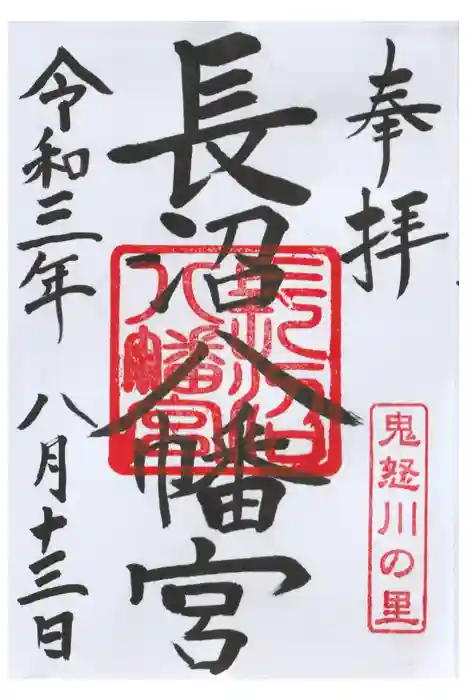 奉拝
鬼怒川の里
長沼八幡宮
令和三年 八月十三日